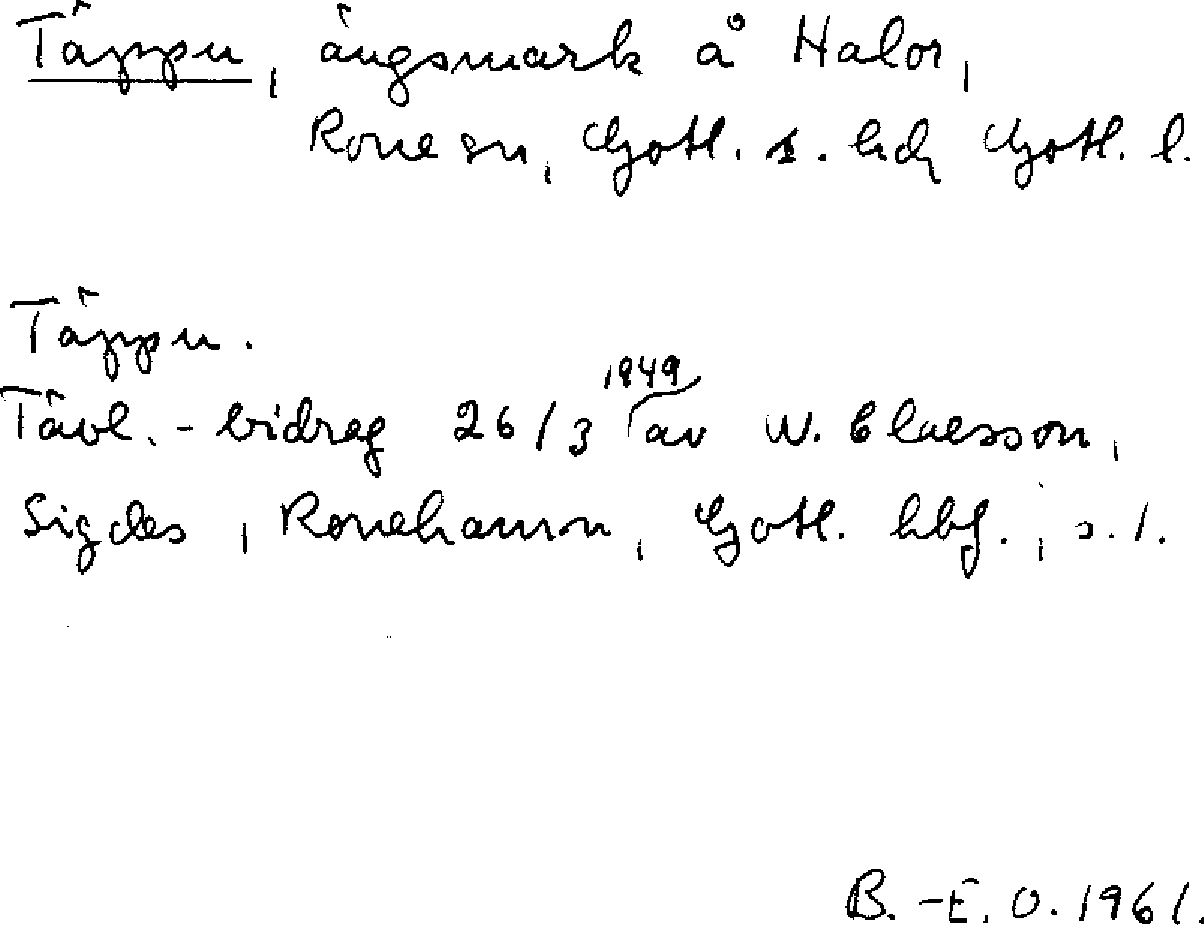 Täppu, ängsmark å Halor,
Rone sn, Gotl. s. hd, Gotl. l.
Täppu.
Tävl.-bidrag 26/3 1949 av W. Claesson,
Sigdes, Ronehamn, Gotl. hbf., s. 1.
B.-E. O. 1961.